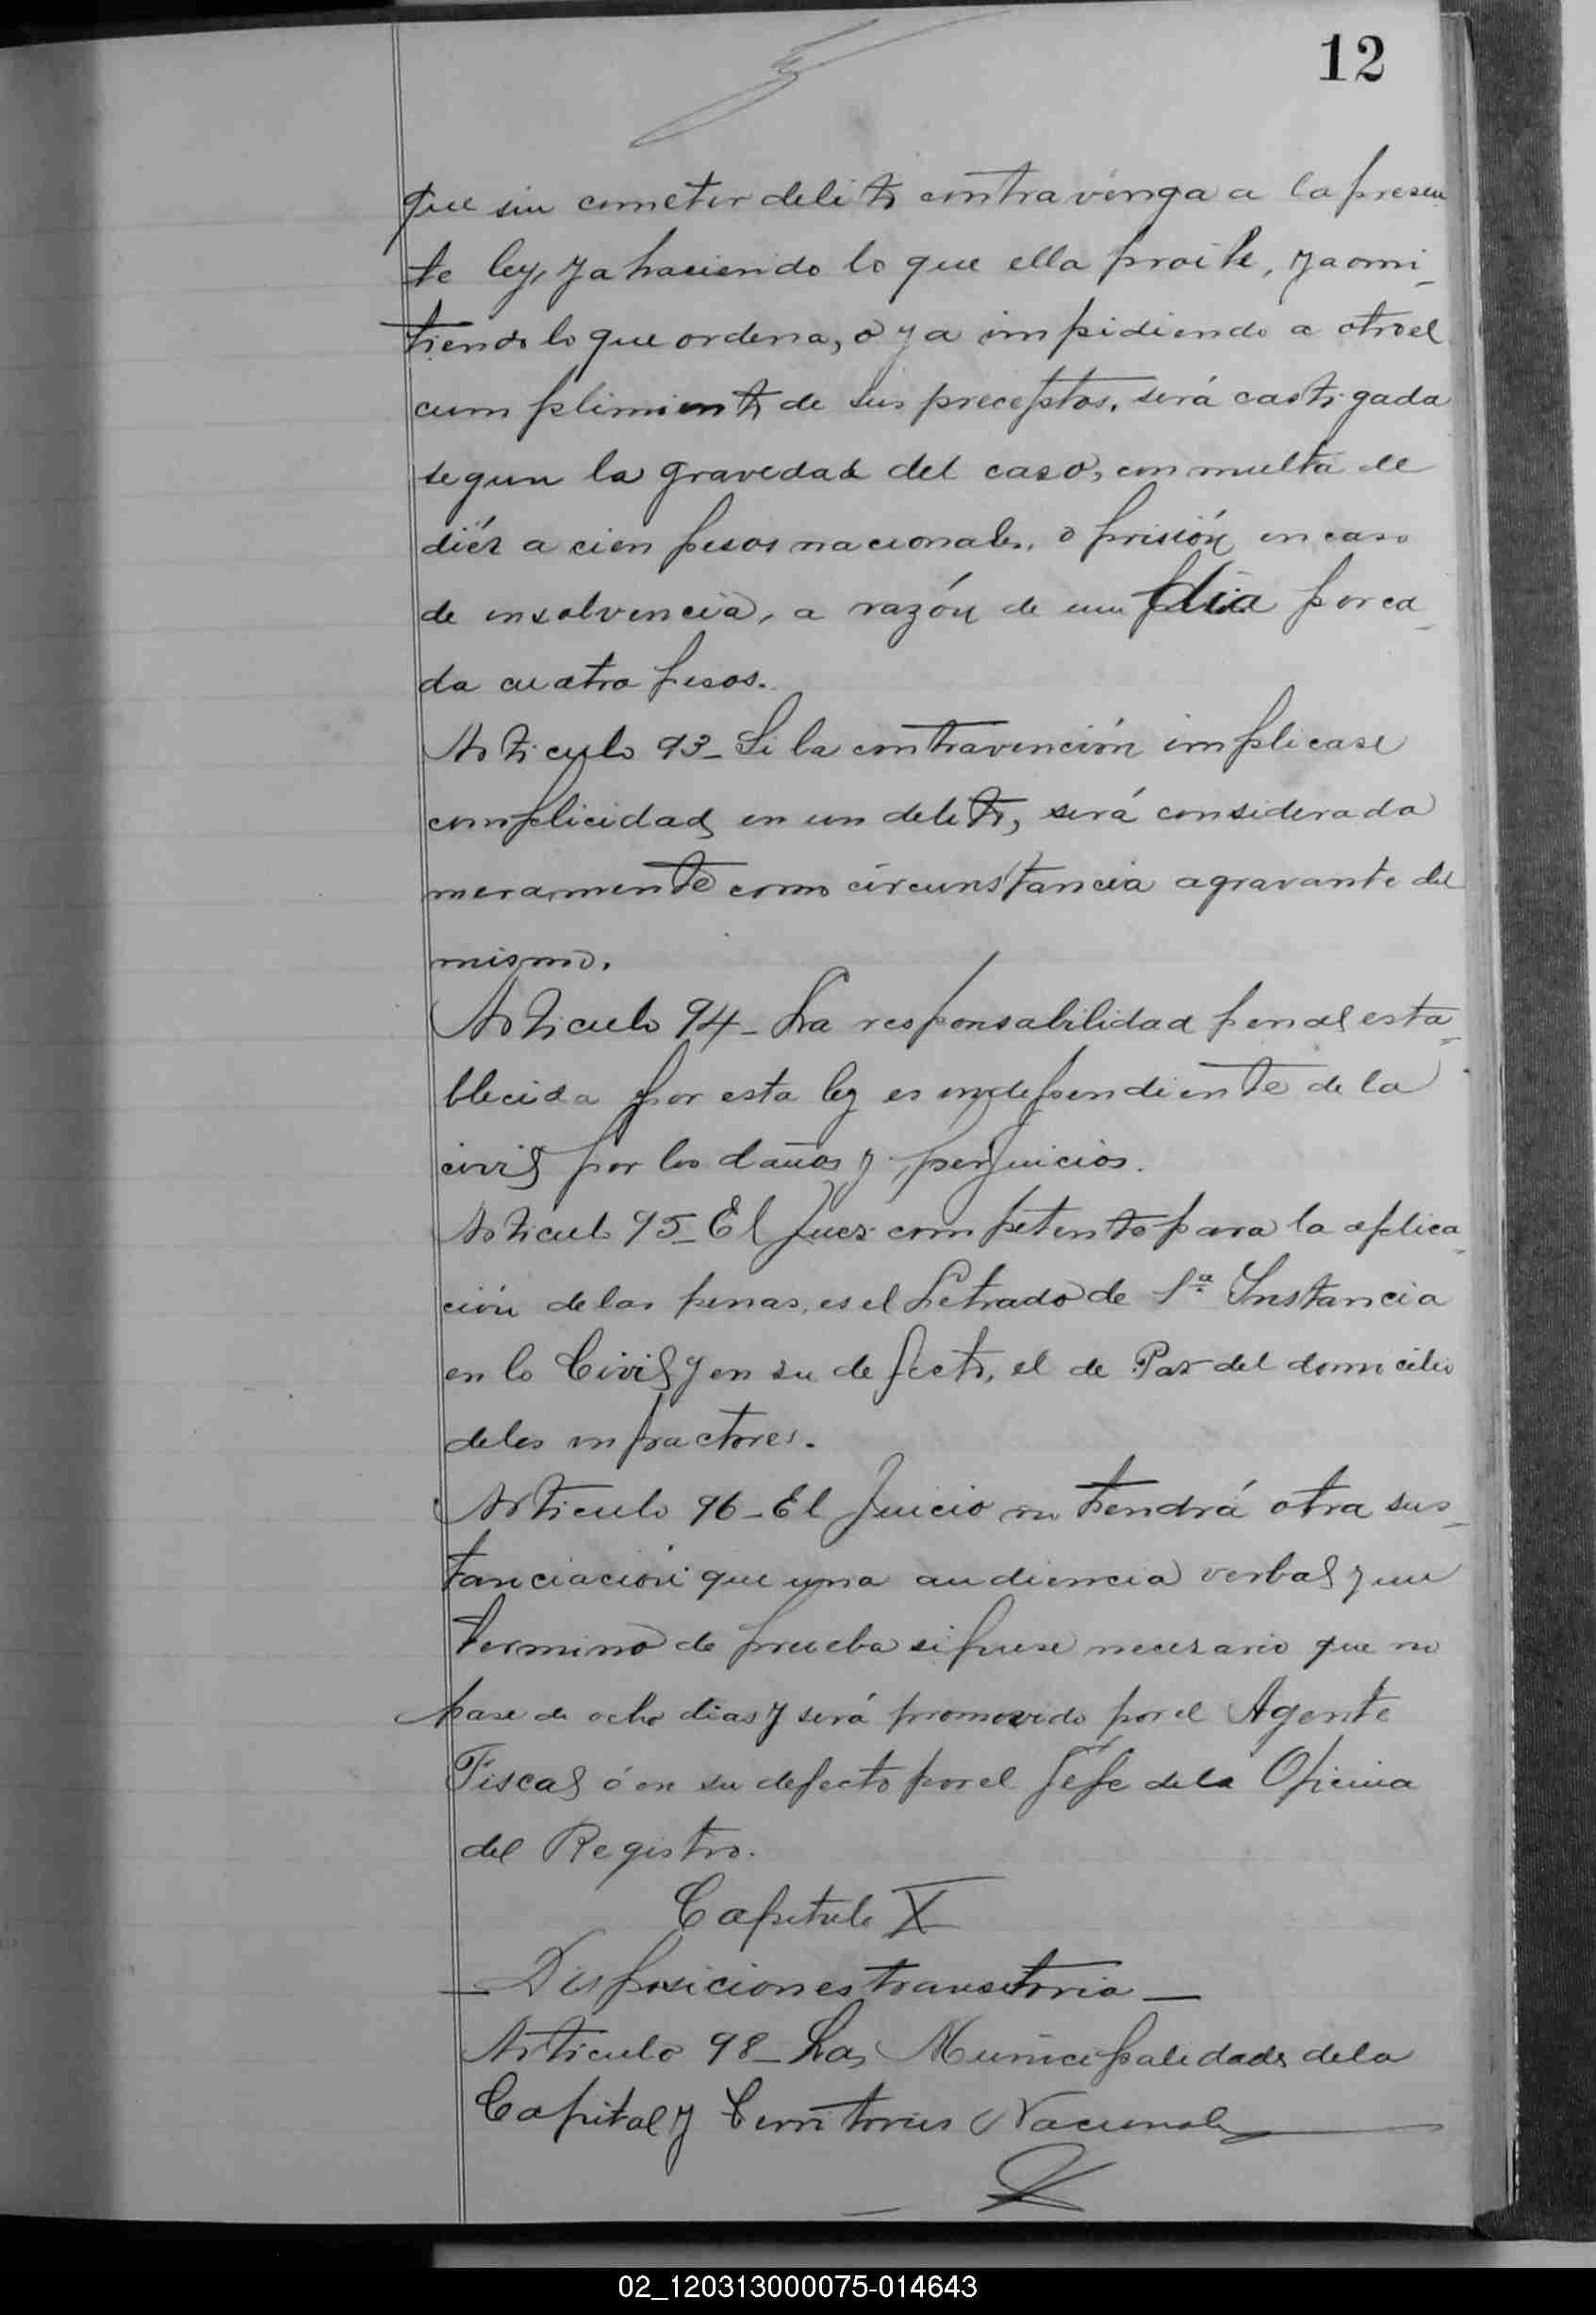 12
que sin cometer delito contravenga a la presen
te ley, ya haciendo lo que ella proibe, ya omi_
tiendo lo que ordena, o ya impidiendo a otro el
cumplimiento de sus preceptos, será castigada
segun la gravedad del caso, con multa de
diéz a cien pesos nacionales, o prisión en caso
de insolvencia, a razón de un dia por ca_
da cuatro pesos.
Articulo 93_ Si la contravención implicase
complicidad en un delito, será considerada
meramente como circunstancia agravante del
mismo.
Articulo 94_ La responsabilidad penal esta_
blecida por esta ley es independiente de la
civil por los daños y perjuicios.
Articulo 95_ El Juez competente para la aplica_
ción de las penas, es el Letrado de 1ª Instancia
en lo Civil y en su defecto, el de Paz del domicilio
de los infractores.
Articulo 96_ El Juicio no tendrá otra sus_
tanciación que una audiencia verbal y un
termino de prueba si fuese necesario que no
pase de ocho dias y será promovido por el Agente
Fiscal ó en su defecto por el Jefe de la Oficina
del Registro.
Capitulo X
_ Disposiciones transitoria _
Articulo 98_ Las Municipalidades de la
Capital y Territorios Nacionales
02_120313000075-014643